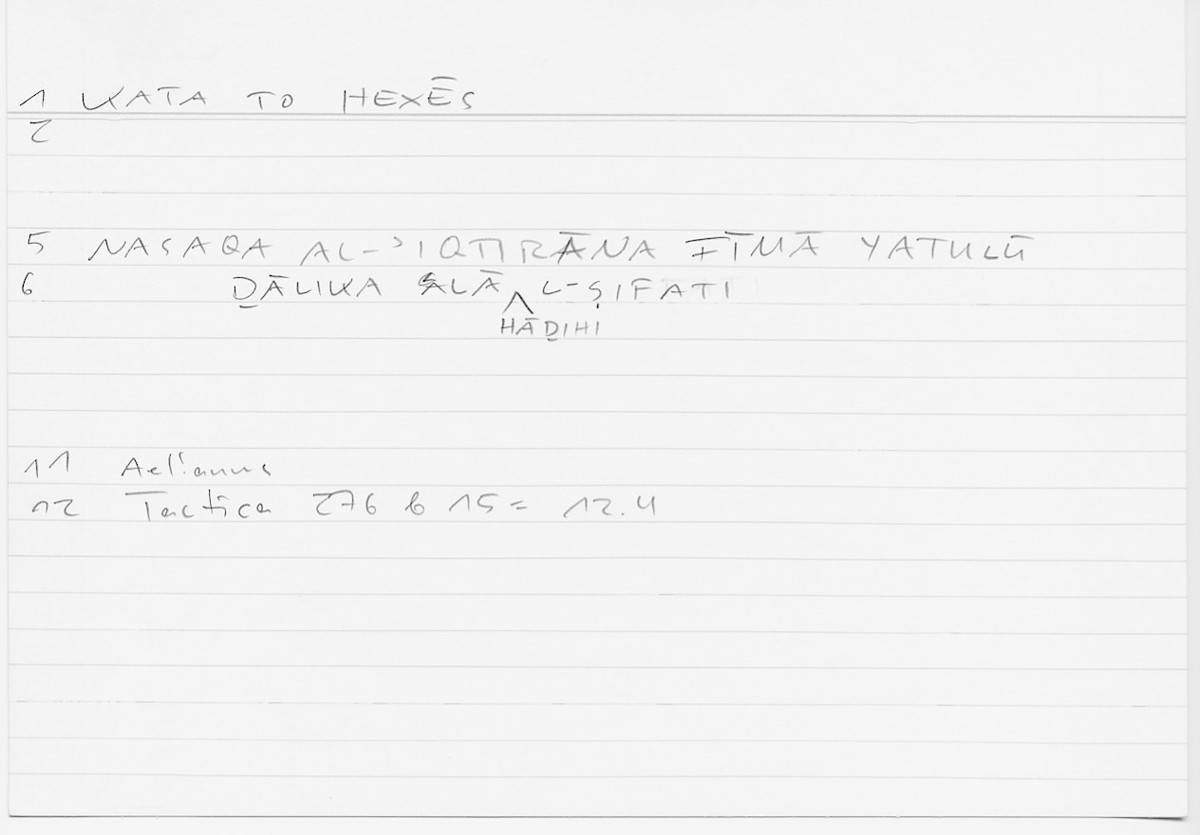 1 KATA TO HEXĒS
2
5 NASAQA AL-ʾIQTIRĀNA FĪMĀ YATULŪ
6 ḎĀLIKA ʿALĀ HĀḎIHI L-ṢIFATI
11 Aelianus
12 Tactica 276 b 15 = 12.4